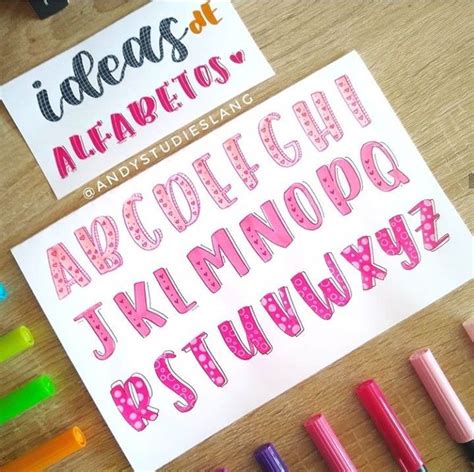 ideas de
ALFABETOS
@ANDYSTUDIESLANG
ABCDEFGHI
JKLMNOPQ
RSTUVWXYZ